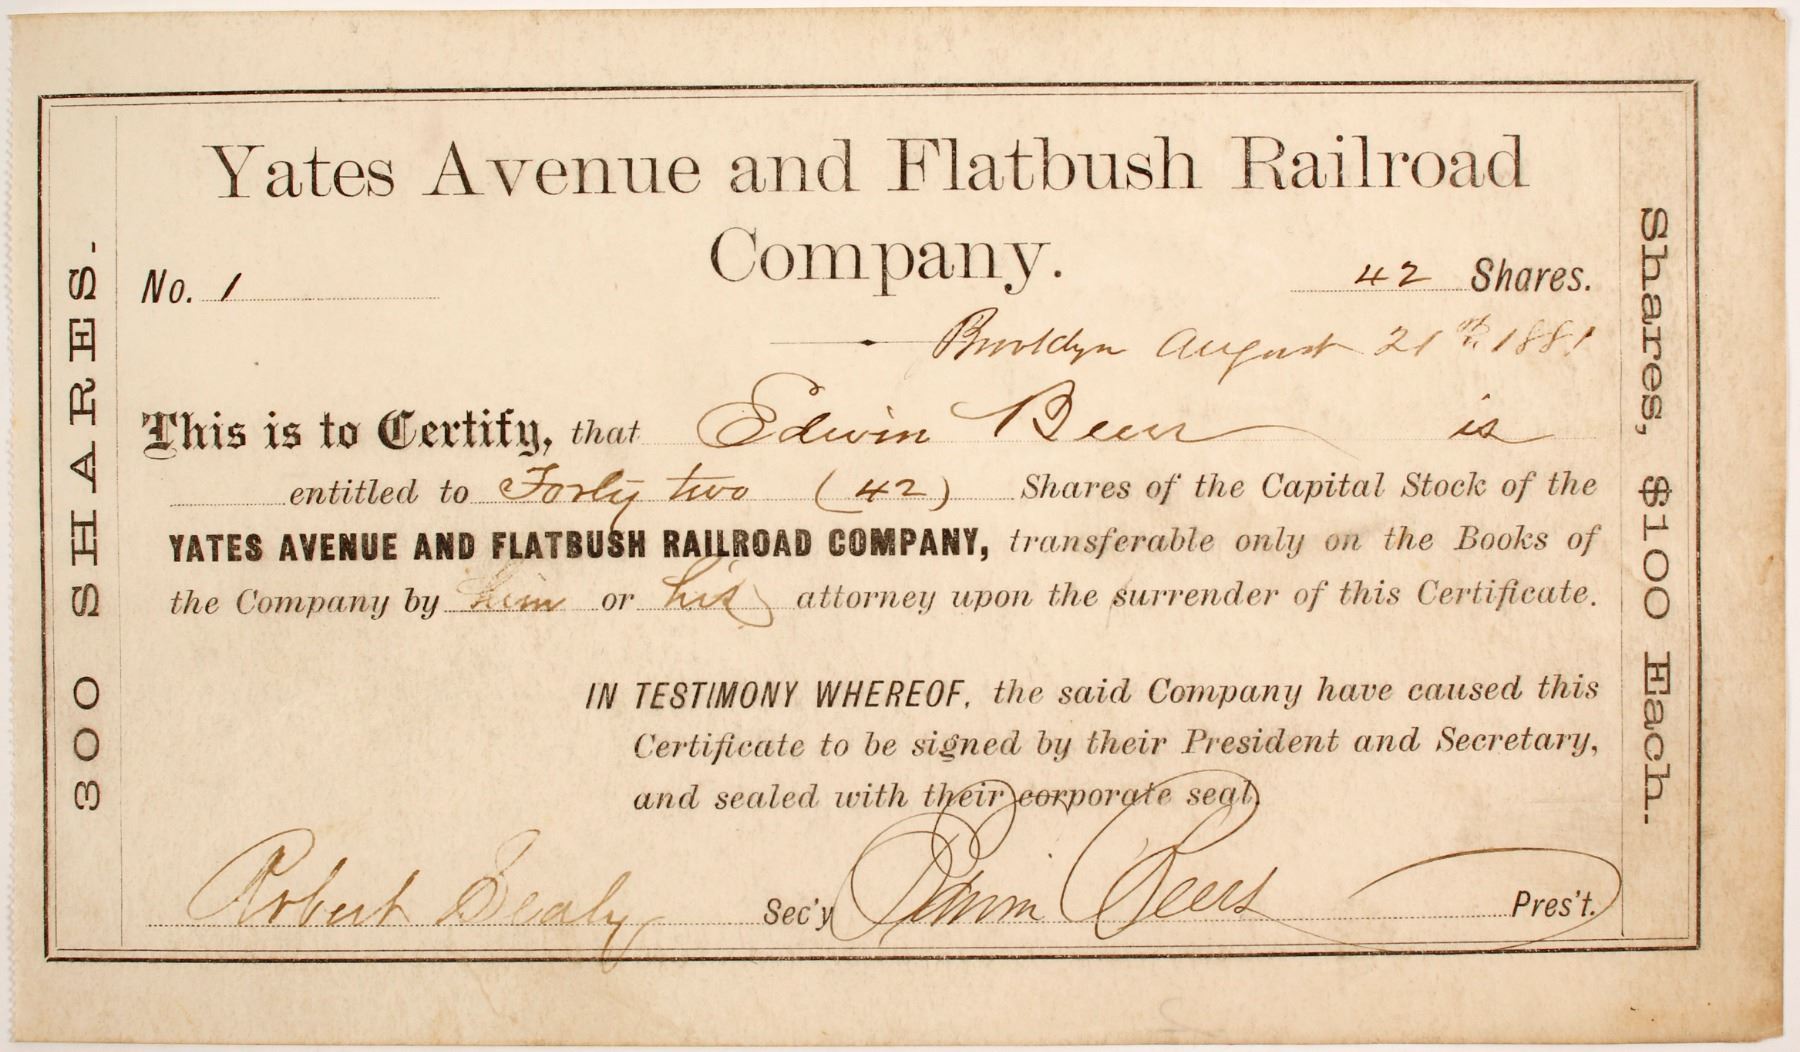 Yates Avenue and Flatbush Railroad
Company.
No. 1
42 Shares.
Brooklyn August 21th, 1881
This is to Certify, that Edwin Beers is
entitled to Forty two (42) Shares of the Capital Stock of the
YATES AVENUE AND FLATBUSH RAILROAD COMPANY, transferable only on the Books of
the Company by him or his attorney upon the surrender of this Certificate.
IN TESTIMONY WHEREOF, the said Company have caused this
Certificate to be signed by their President and Secretary,
and sealed with their corporate seal.
Robert Sealy Sec'y Edwin Beers Pres't.
300 SHARES.
Shares, $100 Each.